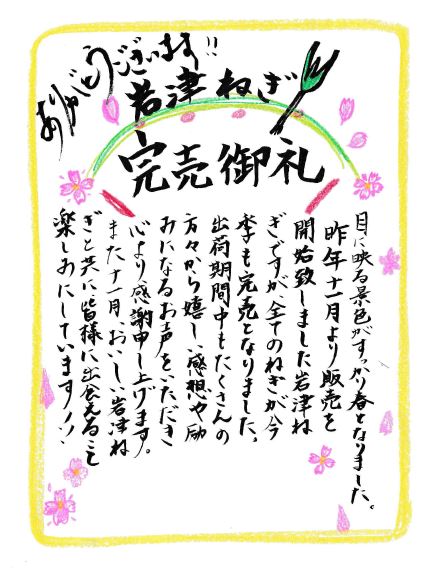 ありがとうございます!!
岩津ねぎ
完売御礼
目に映る景色がすっかり春となりました。
昨年十一月より販売を
開始致しました岩津ね
ぎですが、全てのねぎが今
季も完売となりました。
出荷期間中もたくさんの
方々から嬉しい感想や励
みになるお声をいただき
心より感謝申し上げます。
また十一月、おいしい岩津ね
ぎと共に皆様に出会えること
楽しみにしています!!